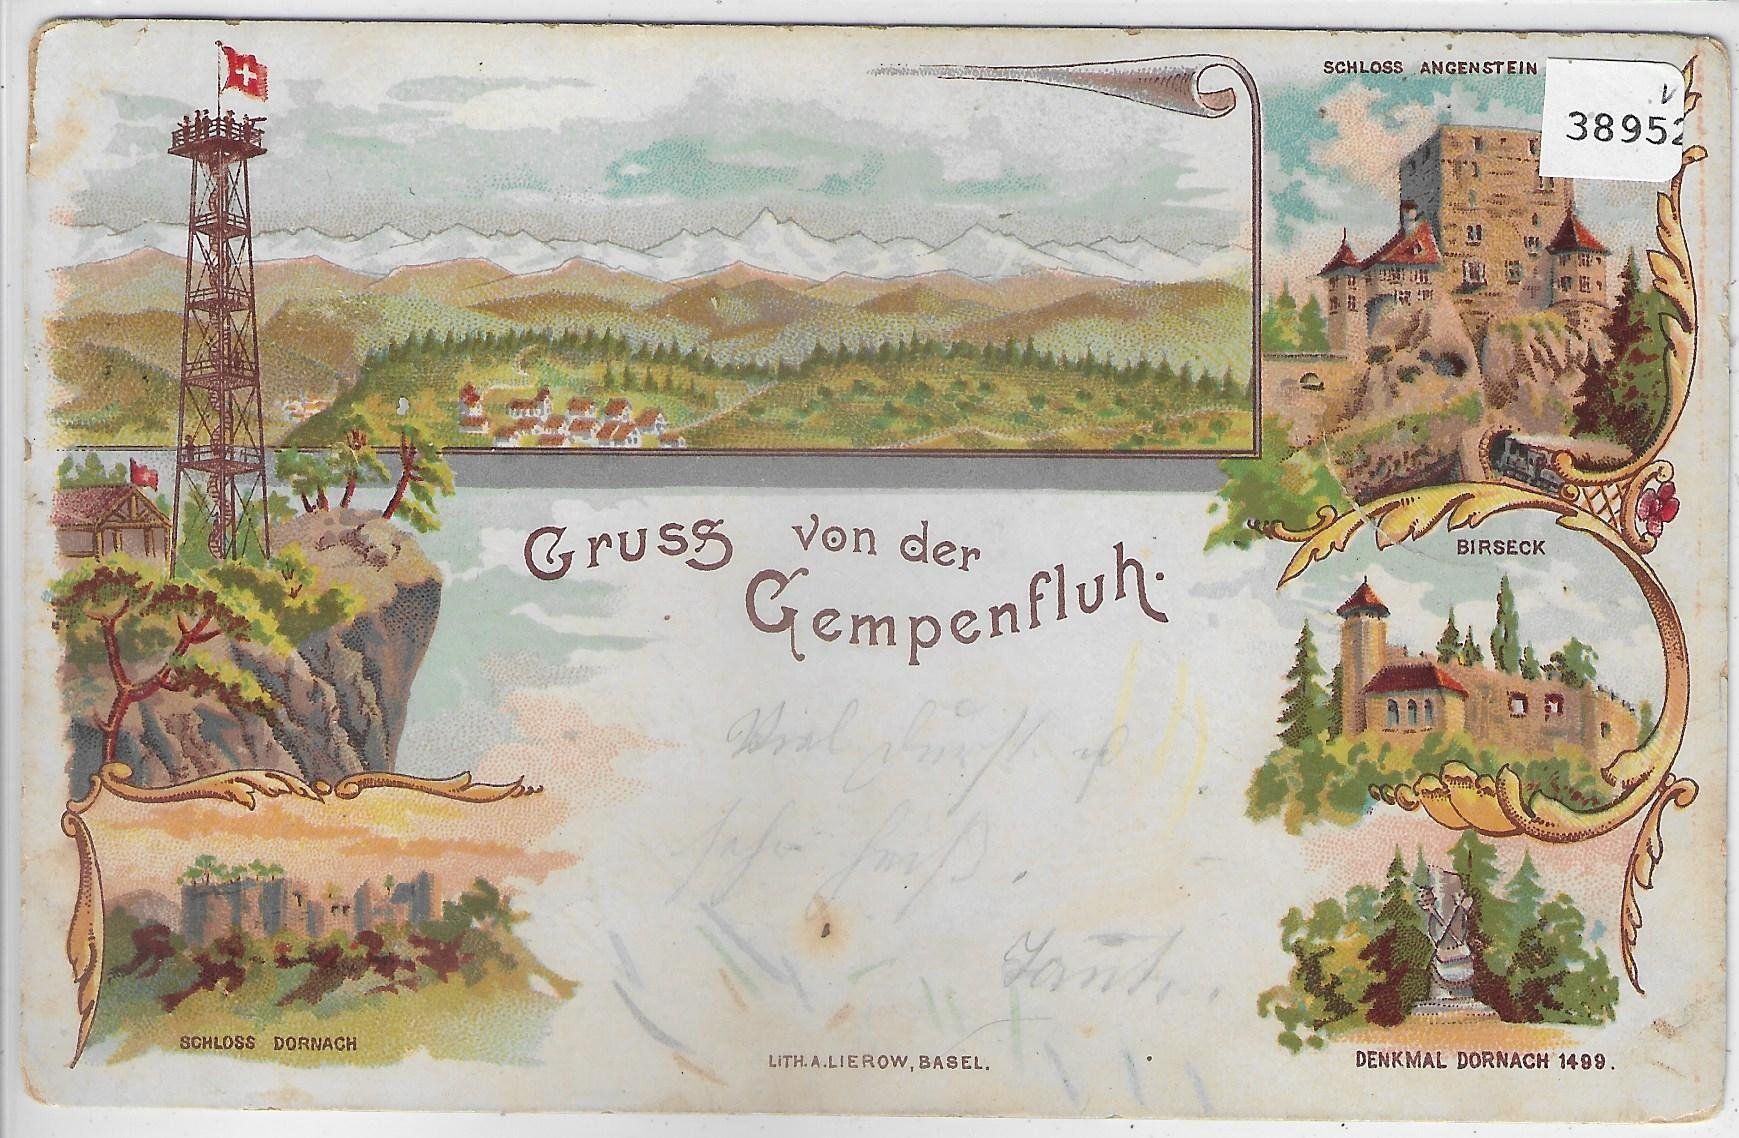 SCHLOSS ANGENSTEIN
38952
Gruss von der
Gempenfluh.
BIRSECK
Viel Durst u
sehr heiß.
SCHLOSS DORNACH
LITH. A. LIEROW, BASEL.
DENKMAL DORNACH 1499.